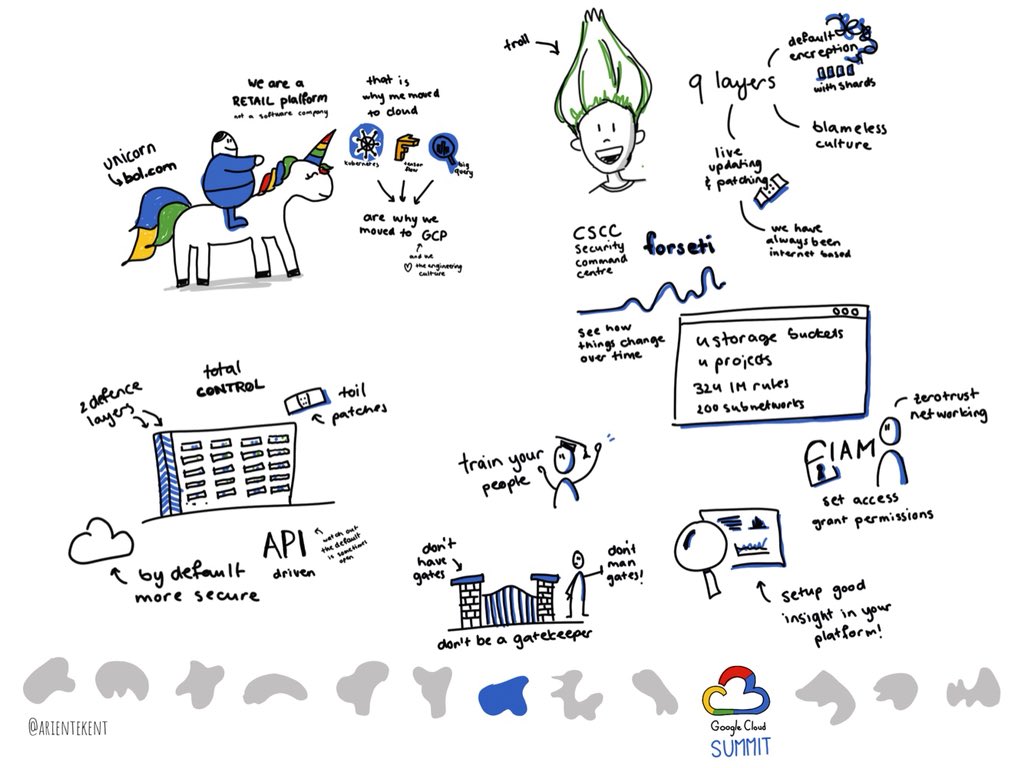 we are a
RETAIL platform
not a software company
unicorn
bol.com
that is
why we moved
to cloud
kubernetes
tensor
flow
big
query
are why we
moved to GCP
and we
the engineering
culture
troll
9 layers
default
encreption
with shards
blameless
culture
live
updating
& patching
we have
always been
internet based
CSCC
Security
command
centre
forseti
see how
things change
over time
4 storage buckets
4 projects
324 IM rules
200 subnetworks
zerotrust
networking
IAM
set access
grant permissions
total
CONTROL
2 defence
layers
toil
patches
by default
more secure
API
driven
watch out
the default
is sometimes
open
train your
people
don't
have
gates
don't
man
gates!
don't be a gatekeeper
setup good
insight in your
platform!
@ARIENTEKENT
Google Cloud
SUMMIT